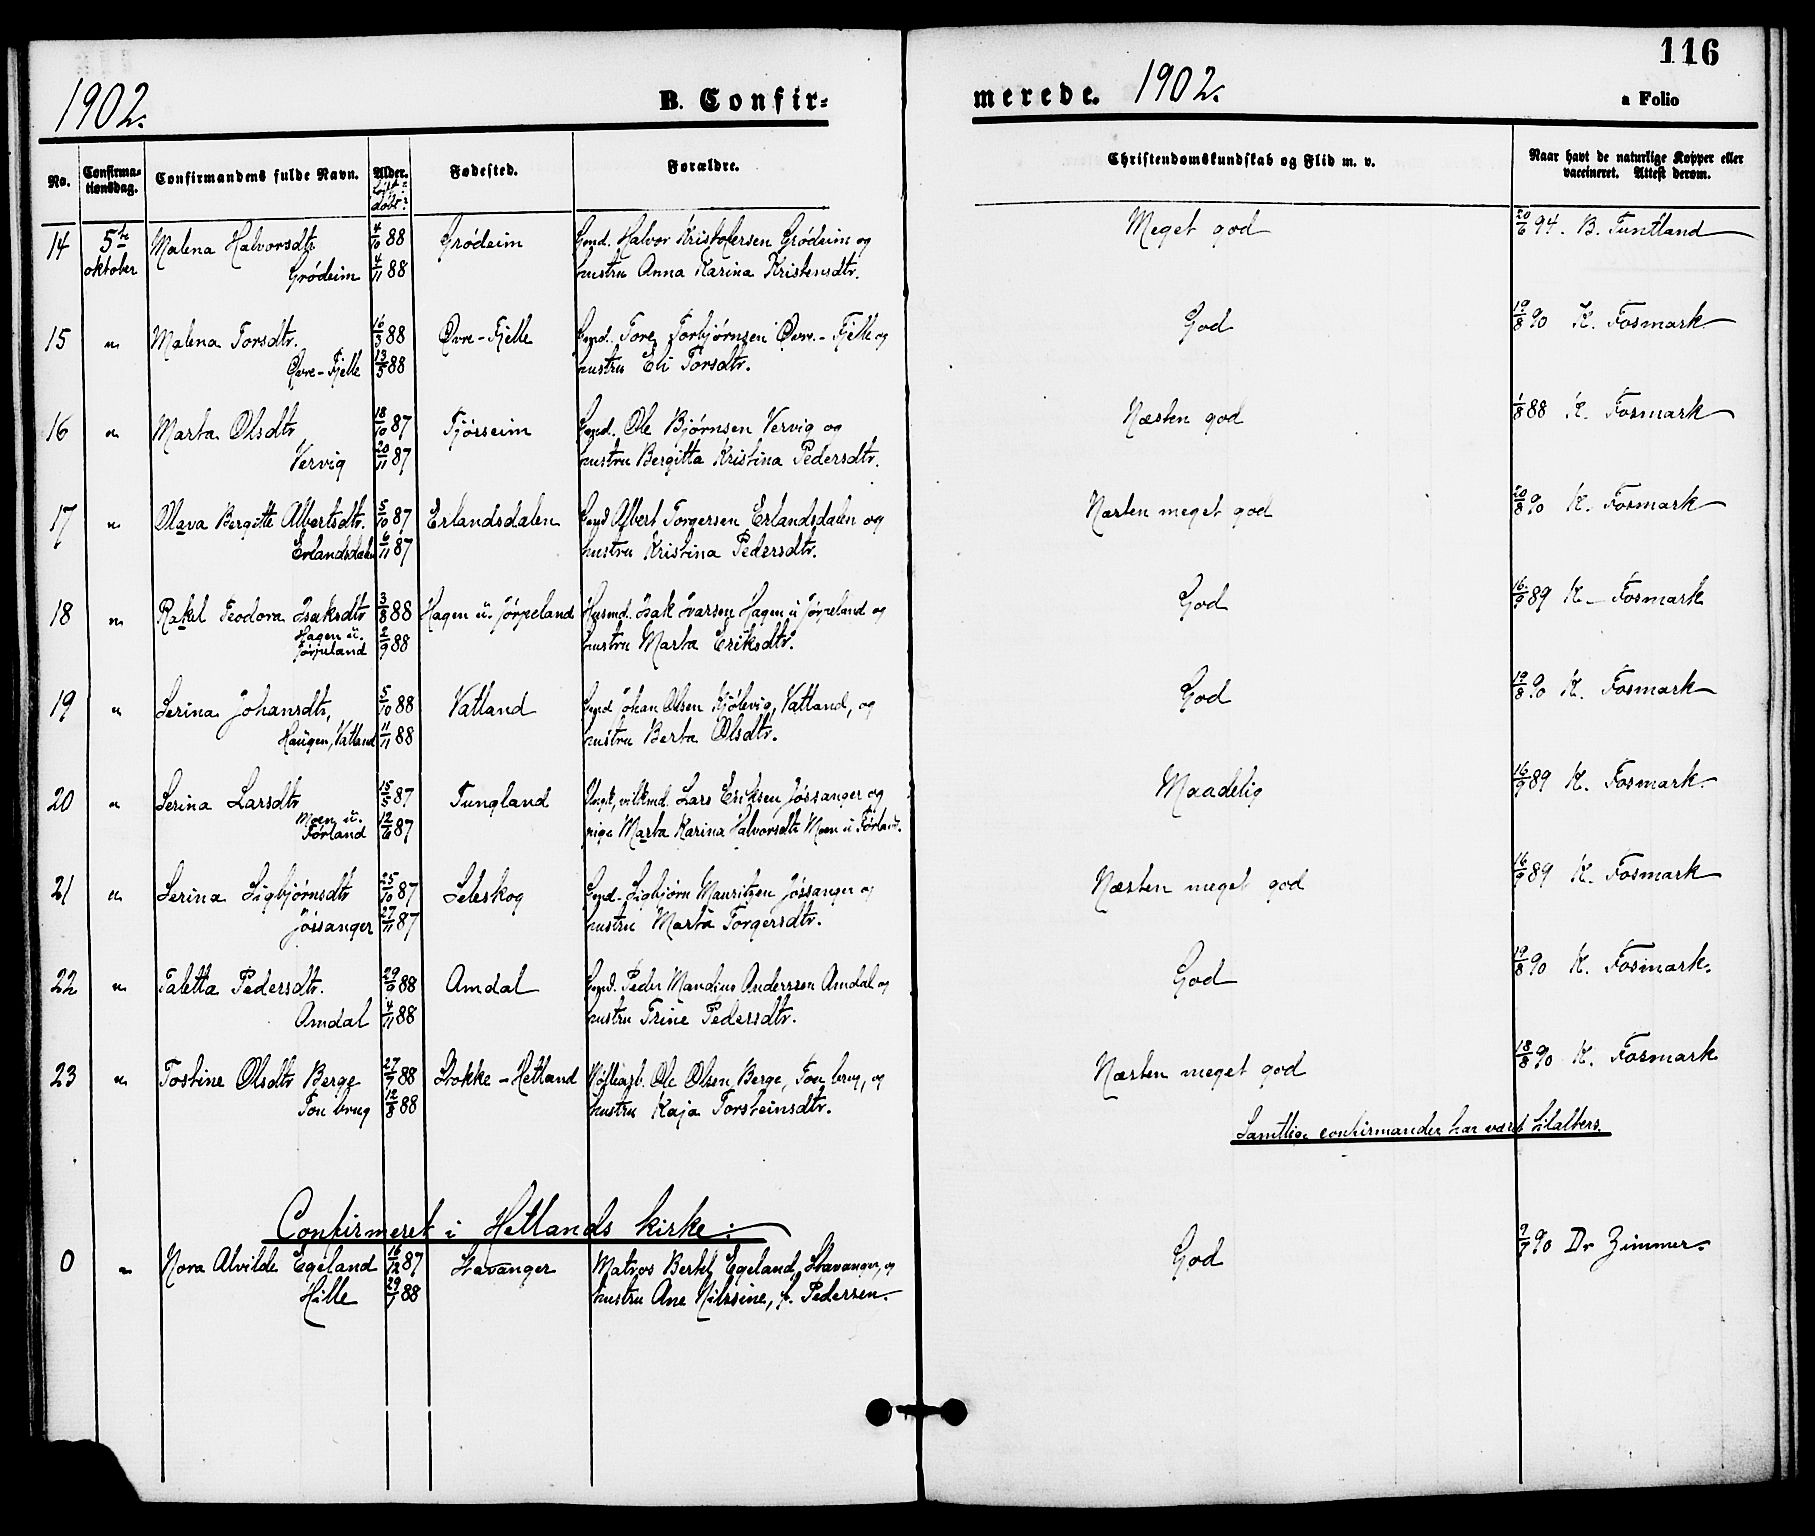 116
1902. B. Confir= merede. 1902. a Folio
No. Confirma-tionsdag. Confirmandens fulde Navn. Alder. født: døbt: Fødested. Forældre. Christendomskundskab og Flid m. v. Naar havt de naturlige Kopper eller vaccineret. Attest derom.
14 5te Malena Halvorsdtr 4/10 88 Grödeim Gmd. Halvor Kristofersen Grödeim og Meget god 20/6 94. B. Tuntland
oktober Grödeim 4/11 88 hustru Anna Karina Kristensdtr.
15 " Malena Torsdtr. 16/3 88 Øvre-Fjelle Gmd. Tore Torbjørnsen Øvre-Fjelle og God 19/8 90 K. Fosmark
Øvre-Fjelle 13/5 88 hustru Eli Torsdtr.
16 " Marta Olsdtr 18/10 87 Tjøsseim Gmd. Ole Bjørnsen Vervig og Næsten god 1/8 88 K. Fosmark
Vervig 20/11 87 hustru Bergitta Kristina Pedersdtr.
17 " Olava Bergitte Albertsdtr. 5/10 87 Erlandsdalen Gmd Albert Torgersen Erlandsdalen og Næsten meget god 20/8 90 K. Fosmark
Erlandsdalen 6/11 87 hustru Kristina Pedersdtr.
18 " Rakel Teodora Isaksdtr 3/8 88 Hagen u. Jörpeland Husmd. Isak Ivarsen Hagen u Jörpeland og God 16/9 89 K. Fosmark
Hagen u. Jörpeland 2/9 88 hustru Marta Eriksdtr.
19 " Serina Johansdtr, 5/10 88 Vatland Gmd Johan Olsen Kjölevig, Vatland, og God 19/8 90 K. Fosmark
Haugen, Vatland 11/11 88 hustru Berta Olsdtr.
20 " Serina Larsdtr 15/5 87 Tungland Ungk, Lars Eriksen Jössanger og Maadelig 16/9 89 K. Fosmark.
Moen u. Førland 12/6 87 pige Marta Karina Halvorsdtr Moen u Førland.
21 " Serina Sigbjørnsdtr 25/10 87 Leleskog Gmd. Sigbjørn Mauritzen Jössanger og Næsten meget god 16/9 89 K. Fosmark
Jössanger 27/11 87 hustru Marta Torgersdtr.
22 " Taletta Pedersdtr. 29/9 88 Amdal Gmd. Peder Mandius Anderssen Amdal og God 19/8 90 K. Fosmark.
Amdal 4/11 88 hustru Trine Pedersdtr.
23 " Tostine Olsdtr Berge 27/7 88 Stokke - Hetland Møllearb. Ole Olsen Berge, Tou brug, og Næsten meget god 18/8 90 K. Fosmark
Tou brug 12/8 88 hustru Kaja Torsteinsdtr.
Samtlige confirmander har været tilalters.
Confirmeret i Hetlands kirke:
0 " Nora Alvilde Egeland 16/12 87 Stavanger Matros Bertel Egeland, Stavanger, og God 9/7 90 Dr Zimmer.
Hille 29/1 88 hustru Ane Nilssine, f. Pedersen.